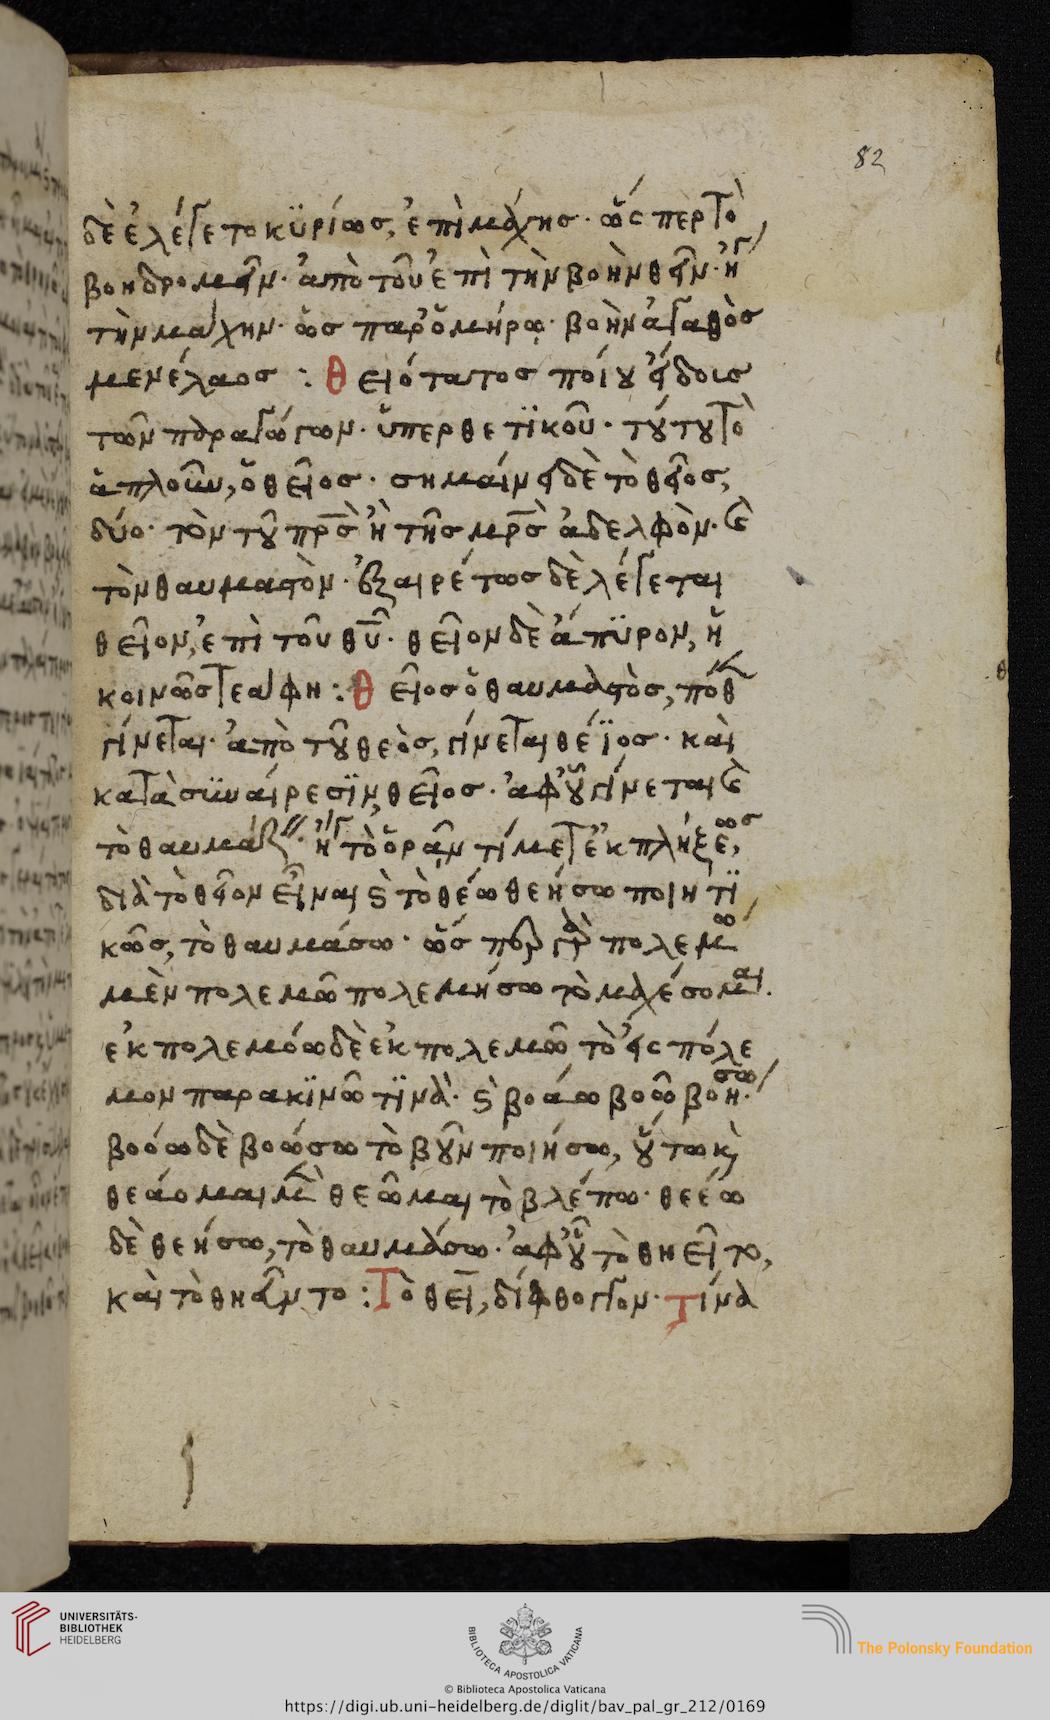 82
δὲ ἐλέγετο κϋρίως, ἐπὶ μάχης· ὥς περ τὸ
βοηδρομεῖν· ἀπὸ τοῦ ἐπὶ τὴν βοὴν θεῖν· ἤγ
τὴν μάχην· ὡς παρ' ὁμήρῳ· βοὴν ἀγαθὸς
μενέλαος : θειότατος ποίου εἴδοις
τῶν παραγώγων· ὑπερθετϊκοῦ· τούτου τὸ
ἁπλοῦν, ὁ θεῖος· σημαίνει δὲ τὸ θεῖος,
δύο· τὸν τοῦ πρς ἢ τῆς μρς ἀδελφὸν· καὶ
τὸν θαυμαστὸν· ἐξαιρέτως δὲ λέγεται
θεῖον, ἐπὶ τοῦ θυ· θεῖον δὲ ἄπϋρον, ἢ
κοινῶς τεάφη : θεῖος ὁ θαυμαστὸς, πόθ
γίνεται· ἀπὸ τοῦ θεὸς, γίνεται θέϊος· καὶ
κατὰ σϋναίρεσϊν, θεῖος· ἀφ' οὗ γίνεται καὶ
τὸ θαυμάζ· ἤγ τὸ ὁρᾶν τί μετ ἐκπλήξεως,
διὰ τὸ θεῖον εἶναι καὶ τὸ θέω θεήσω ποιητϊ
κῶς, τὸ θαυμάσω· ὥς περ γὰρ πολεμω
μὲν πολεμῶ πολεμήσω τὸ μαχέσομαι.
ἐκπολεμόω δὲ ἐκπολεμῶ τὸ εἰς πόλε
μον παρακϊνῶ τϊνὰ· καὶ βοάω βοῶ βοήσω·
βοόω δὲ βοώσω τὸ βοῦν ποιήσω, οὕτω κὶ
θεάομαι μὲν θεῶμαι τὸ βλέπω· θεέω
δὲ θεήσω, τὸ θαυμάσω· ἀφ' οὗ τὸ θηεῖτο,
καὶ τὸ θηᾶντο : Τὸ θεῖ, δίφθογγον· τίνα
UNIVERSITÄTS-
BIBLIOTHEK
HEIDELBERG
BIBLIOTECA APOSTOLICA VATICANA
The Polonsky Foundation
© Biblioteca Apostolica Vaticana
https://digi.ub.uni-heidelberg.de/diglit/bav_pal_gr_212/0169